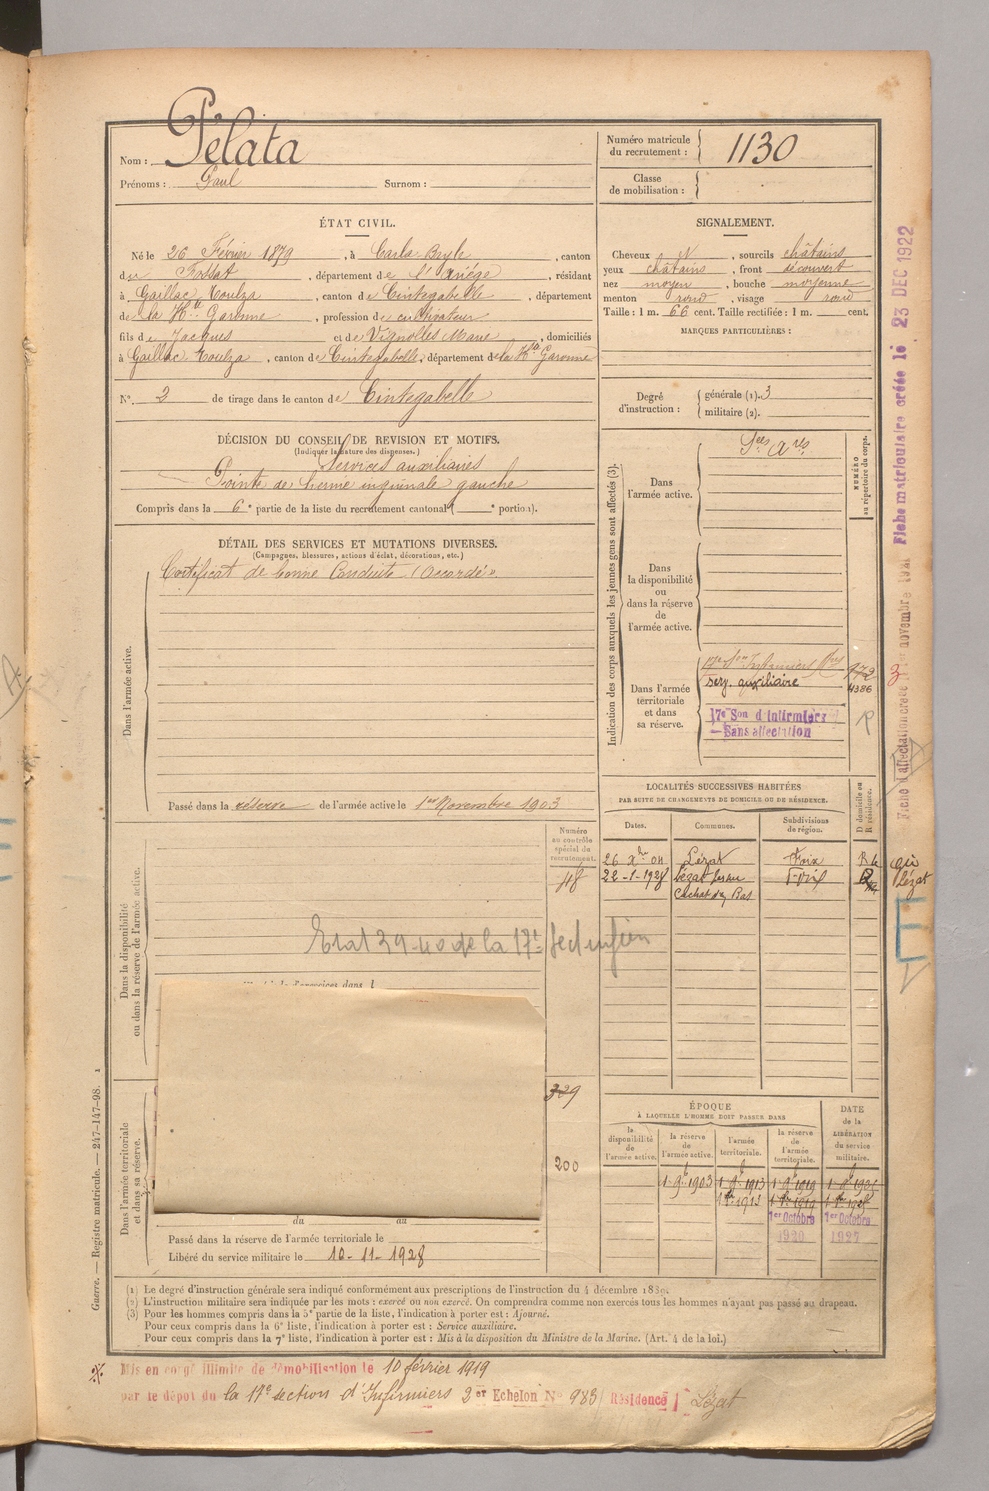 Nom : Pélata
Prénoms : Paul Surnom :
Numéro matricule du recrutement : 1130
Classe de mobilisation :
ÉTAT CIVIL.
Né le 26 Février 1879, à Carla-Bayle, canton
du Fossat, département de l'Ariège, résidant
à Gaillac Toulza, canton de Cintegabelle, département
de la Hte Garonne, profession de cultivateur
fils de Jacques et de Vignolles Marie, domiciliés
à Gaillac Toulza, canton de Cintegabelle, département de la Hte Garonne
N° 2 de tirage dans le canton de Cintegabelle
SIGNALEMENT.
Cheveux N, sourcils châtains
yeux châtains, front découvert
nez moyen, bouche moyenne
menton rond, visage rond
Taille : 1 m. 66 cent. Taille rectifiée : 1 m. cent.
MARQUES PARTICULIÈRES :
Degré d'instruction : générale (1). 3
militaire (2).
DÉCISION DU CONSEIL DE REVISION ET MOTIFS.
(Indiquer la nature des dispenses.)
Services auxiliaires
Pointe de hernie inguinale gauche
Compris dans la 6e partie de la liste du recrutement cantonal ( e portion).
DÉTAIL DES SERVICES ET MUTATIONS DIVERSES.
(Campagnes, blessures, actions d'éclat, décorations, etc.)
Certificat de bonne Conduite "Accordé"
Dans l'armée active.
Passé dans la réserve de l'armée active le 1er Novembre 1903
Indication des corps auxquels les jeunes gens sont affectés (3).
NUMÉRO au répertoire du corps.
Dans l'armée active.
Dans la disponibilité ou dans la réserve de l'armée active.
Dans l'armée territoriale et dans sa réserve.
serv. auxiliaire
4386
17e Son d'Infirmiers
Sans affectation
R
LOCALITÉS SUCCESSIVES HABITÉES
PAR SUITE DE CHANGEMENTS DE DOMICILE OU DE RÉSIDENCE.
Dates. Communes. Subdivisions de région. D domicile ou R résidence.
Lézat Foix
22-1-1928 Lézat
Lézat
Numéro au contrôle spécial du recrutement.
48
Dans la disponibilité ou dans la réserve de l'armée active.
Etat 39-40 de la 17e Sect infien
329
200
Dans l'armée territoriale et dans sa réserve.
du au
Passé dans la réserve de l'armée territoriale le
Libéré du service militaire le 10-11-1928
ÉPOQUE
À LAQUELLE L'HOMME DOIT PASSER DANS
DATE de la LIBÉRATION du service militaire.
la disponibilité de l'armée active. la réserve de l'armée active. l'armée territoriale. la réserve de l'armée territoriale.
1 9bre 1903 1 9bre 1913 1 9bre 1919
1er Octobre 1920 1er Octobre 1927
(1) Le degré d'instruction générale sera indiqué conformément aux prescriptions de l'instruction du 4 décembre 1889.
(2) L'instruction militaire sera indiquée par les mots : exercé ou non exercé. On comprendra comme non exercés tous les hommes n'ayant pas passé au drapeau.
(3) Pour les hommes compris dans la 5e partie de la liste, l'indication à porter est : Ajourné.
Pour ceux compris dans la 6e liste, l'indication à porter est : Service auxiliaire.
Pour ceux compris dans la 7e liste, l'indication à porter est : Mis à la disposition du Ministre de la Marine. (Art. 4 de la loi.)
Mis en congé illimité de démobilisation le 10 février 1919
par le dépôt du la 17e section d'Infirmiers 2er Echelon N° 983 Résidence Lézat
Guerre. — Registre matricule. — 247-147-98. 1
Fiche matriculaire créée le 23 DEC 1922